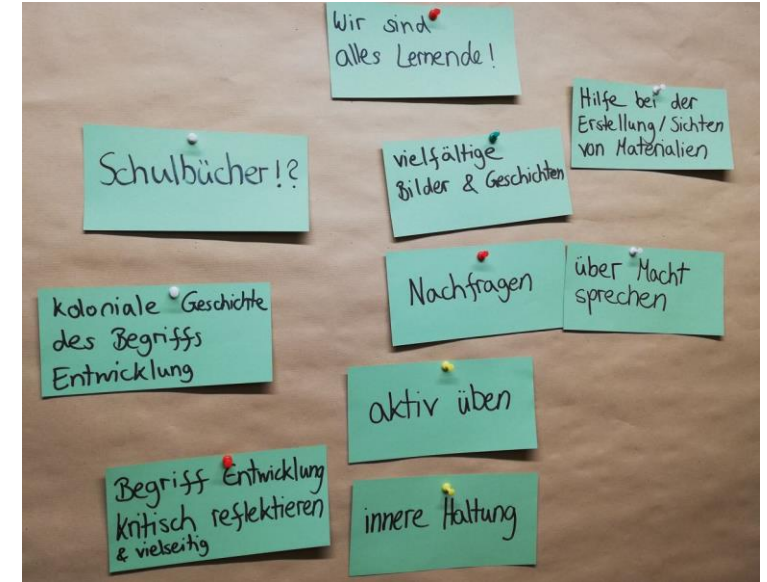 Wir sind
alles Lernende!
Hilfe bei der
Erstellung/Sichten
von Materialien
Schulbücher!?
vielfältige
Bilder & Geschichten
Nachfragen
über Macht
sprechen
koloniale Geschichte
des Begriffs
Entwicklung
aktiv üben
Begriff Entwicklung
kritisch reflektieren
& vielseitig
innere Haltung